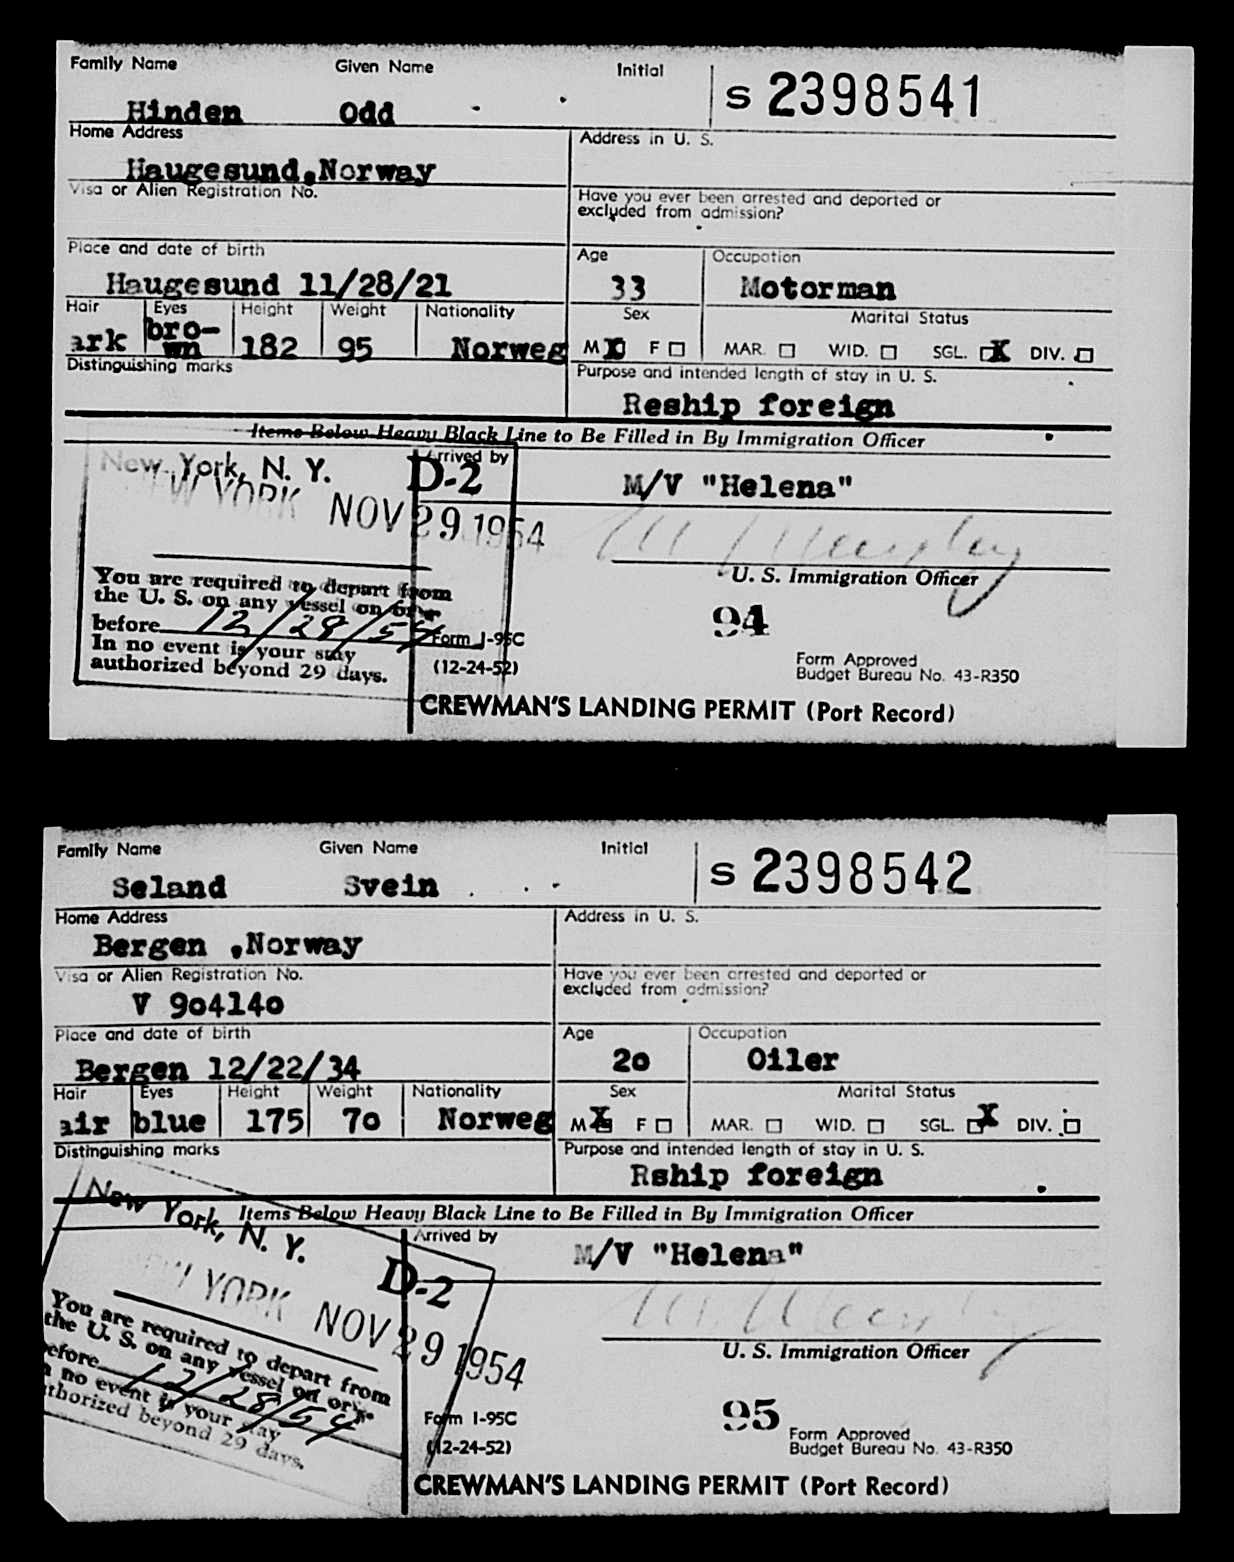 Family Name Given Name Initial
S 2398541
Hinden Odd -
Home Address Address in U. S.
Haugesund,Norway
Visa or Alien Registration No. Have you ever been arrested and deported or
excluded from admission?
Place and date of birth Age Occupation
Haugesund 11/28/21 33 Motorman
Hair Eyes Height Weight Nationality Sex Marital Status
ark bro-
wn 182 95 Norweg M X F MAR. WID. SGL. X DIV.
Distinguishing marks Purpose and intended length of stay in U. S.
Reship foreign
Items Below Heavy Black Line to Be Filled in By Immigration Officer
New York, N. Y. D-2 Arrived by
M/V "Helena"
NEW YORK NOV 29 1954
U. S. Immigration Officer
You are required to depart from
the U. S. on any vessel on or
before 12/28/54
In no event is your stay
authorized beyond 29 days.
94
Form I-95C
(12-24-52)
Form Approved
Budget Bureau No. 43-R350
CREWMAN'S LANDING PERMIT (Port Record)
Family Name Given Name Initial
S 2398542
Seland Svein
Home Address Address in U. S.
Bergen ,Norway
Visa or Alien Registration No. Have you ever been arrested and deported or
excluded from admission?
V 904140
Place and date of birth Age Occupation
Bergen 12/22/34 20 Oiler
Hair Eyes Height Weight Nationality Sex Marital Status
air blue 175 70 Norweg M X F MAR. WID. SGL. X DIV.
Distinguishing marks Purpose and intended length of stay in U. S.
Rship foreign
Items Below Heavy Black Line to Be Filled in By Immigration Officer
New York, N. Y. D-2 Arrived by
M/V "Helena"
NEW YORK NOV 29 1954
U. S. Immigration Officer
You are required to depart from
the U. S. on any vessel on or
efore 12/28/54
n no event is your stay
uthorized beyond 29 days.
95
Form I-95C
(12-24-52)
Form Approved
Budget Bureau No. 43-R350
CREWMAN'S LANDING PERMIT (Port Record)